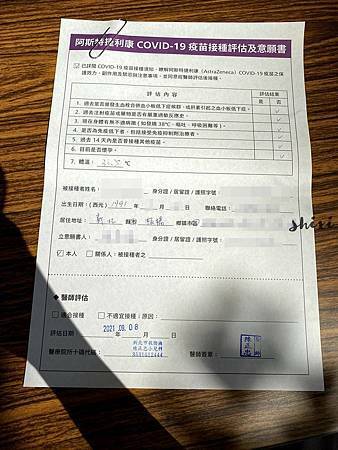 阿斯特捷利康 COVID-19 疫苗接種評估及意願書
☑已詳閱 COVID-19 疫苗接種須知，瞭解阿斯特捷利康（AstraZeneca）COVID-19 疫苗之保
護效力、副作用及禁忌與注意事項，並同意經醫師評估後接種。
評估內容 評估結果
是 否
1. 過去是否曾發生血栓合併血小板低下症候群，或肝素引起之血小板低下症。 ✓
2. 過去注射疫苗或藥物是否有嚴重過敏反應史。 ✓
3. 現在身體有無不適病徵（如發燒 38℃、嘔吐、呼吸困難等） ✓
4. 是否為免疫低下者，包括接受免疫抑制劑治療者。 ✓
5. 過去 14 天內是否曾接種其他疫苗。 ✓
6. 目前是否懷孕。 ✓
7. 體溫： ℃
被接種者姓名： 身分證/居留證/護照字號：
出生日期：（西元）1991 年 月 日 聯絡電話：
居住地址： 新北 縣市 板橋 鄉鎮市區
shisi
立意願書人： 身分證/居留證/護照字號：
☑本人 □關係人：被接種者之
◆ 醫師評估
□適合接種 □不適宜接種；原因：
評估日期 2021.09.08 年 月 日
醫療院所十碼代碼： 醫師簽章：